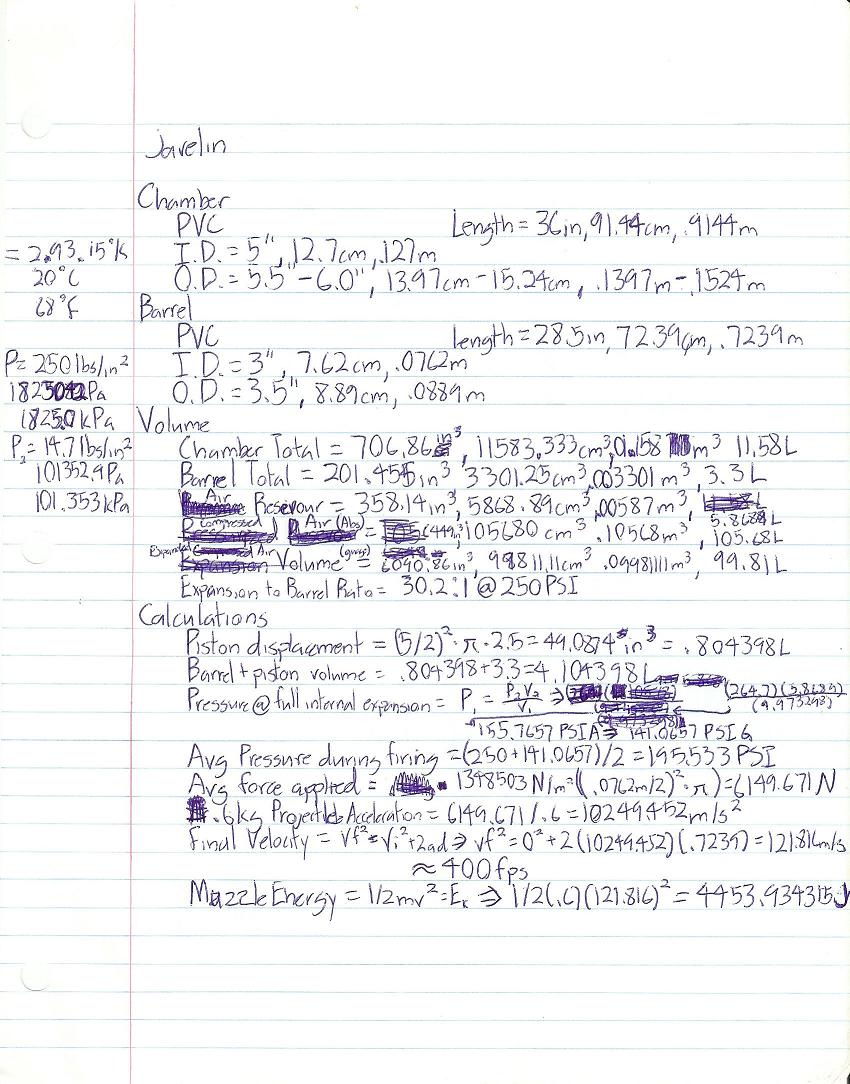 Javelin
Chamber
PVC Length = 36in, 91.44cm, .9144m
= 2.93.15°K I.D. = 5", 12.7cm, .127m
20°C O.D. = 5.5" - 6.0", 13.97cm - 15.24cm, .1397m - .1524m
68°F Barrel
PVC length = 28.5in, 72.39cm, .7239m
P = 250 lbs/in² I.D. = 3", 7.62cm, .0762m
Pa O.D. = 3.5", 8.89cm, .0889m
1825.0 kPa Volume
P₂ = 14.7 lbs/in² Chamber Total = 706.86 in³, 11583.333cm³, 0.158 m³ 11.58L
101352.9Pa Barrel Total = 201.455in³ 3301.25cm³, .003301m³, 3.3L
101.353kPa Air Reservour = 358.14in³, 5868.89cm³, .00587m³,
5.8688L
Compressed Air (Abs) = (449in³, 105680 cm³ .10568m³, 105.68L
Expanded Air Volume (guage) = 6090.86in³, 99811.11cm³ .0998111m³, 99.81L
Expansion to Barrel Ratio = 30.2:1 @ 250PSI
Calculations
Piston displacement = (5/2)²·π·2.5 = 49.0874 in³ = .804398L
Barrel + piston volume = .804398 + 3.3 = 4.104398L
Pressure @ full internal expansion = P₁ = P₂V₂/V₁ ⇒ (264.7)(5.8689)/(9.973298)
155.7657 PSIA ⇒ 141.0657 PSIG
Avg Pressure during firing = (250 + 141.0657)/2 = 195.533 PSI
Avg force applied = 1348503 N/m = ((.0762m/2)²·π) = 6149.671 N
.6kg Projectile Acceleration = 6149.671/.6 = 10249.452m/s²
Final Velocity = Vf² = Vi² + 2ad ⇒ vf² = 0² + 2(10249.452)(.7239) = 121.816m/s
≈ 400 fps
Muzzle Energy = 1/2mv² = Eₖ ⇒ 1/2(.6)(121.816)² = 4453.934315J